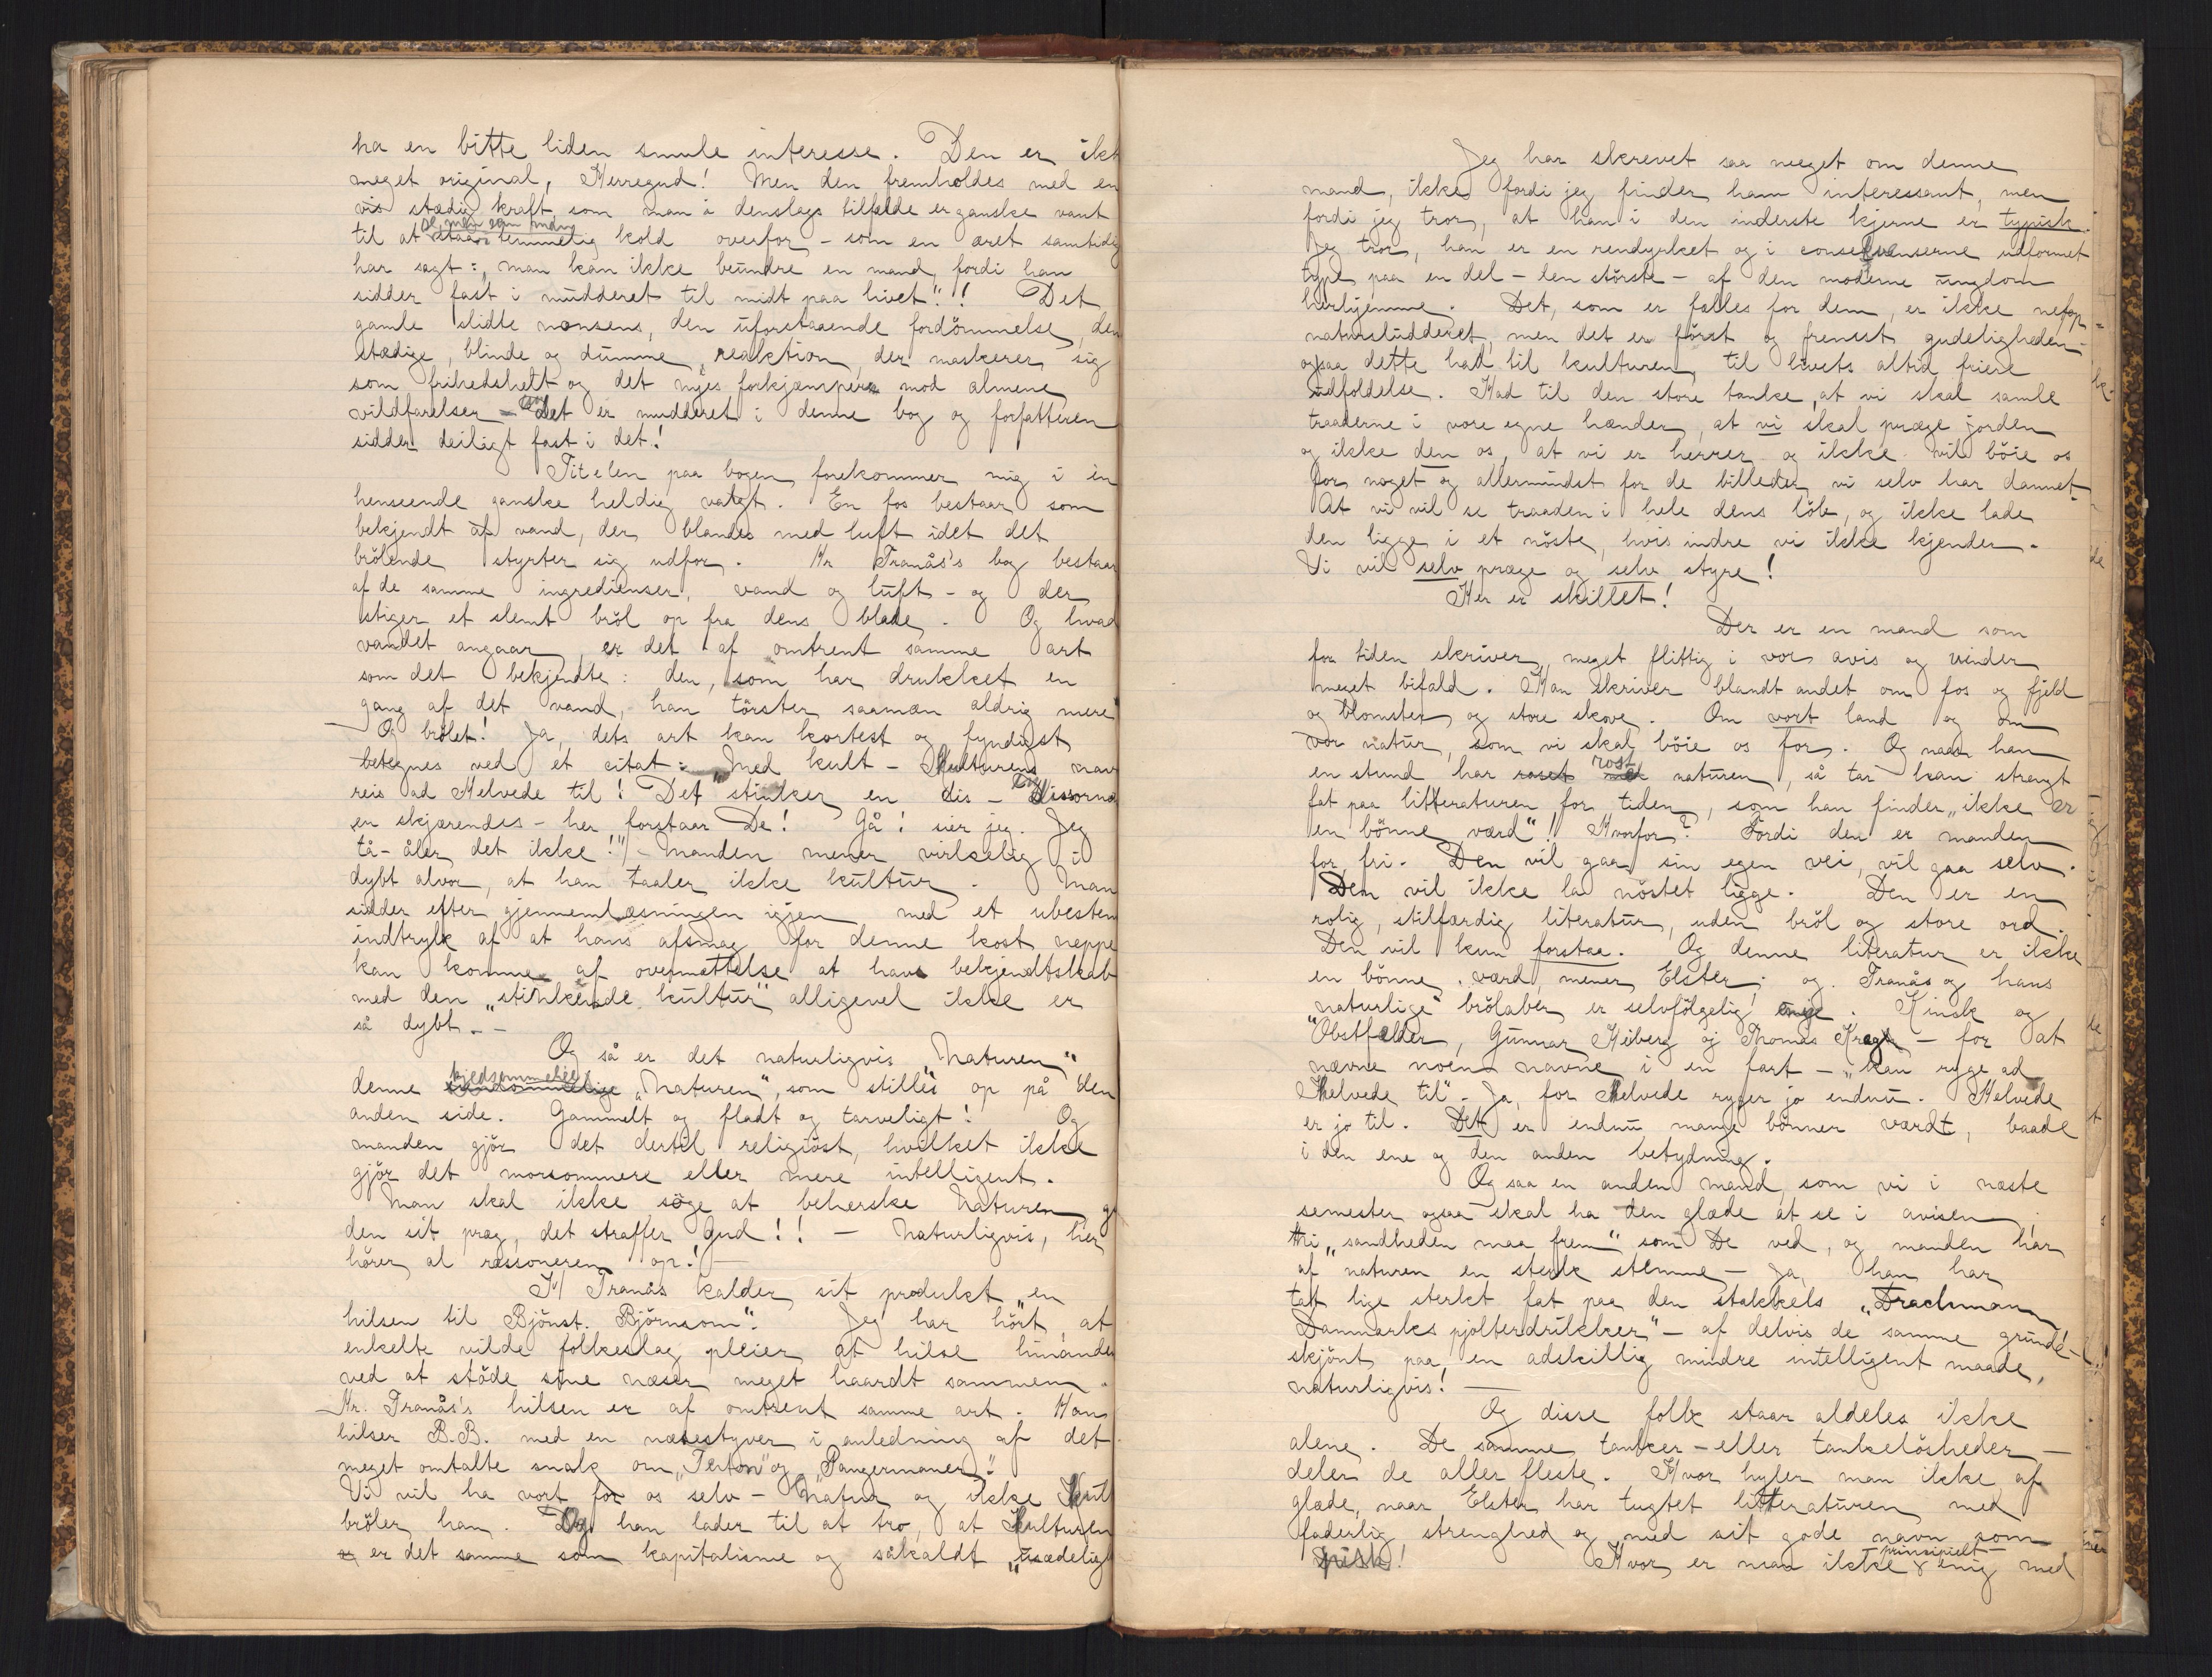 ha en bitte liden smule interesse. Den er ikk
meget original, Herregud! Men den fremholdes med en
vis stædig kraft, som man i denslags tilfælde er ganske vant
til at staa temmelig kold overfor - som en æret samtidig
har sagt: „man kan ikke beundre en mand, fordi han
sidder fast i mudderet til midt paa livet"! Det
gamle slidte nonsens, den uforstaaende fordömmelse, den
stædige, blinde og dumme reaktion, der maskerer sig
som frihedshelt og det nyes forkjæmper mod almene
vildfarelser - det er mudderet i denne bog og forfatteren
sidder deiligt fast i det!
Titelen paa bogen forekommer mig i én
henseende ganske heldig valgt. En fos bestaar som
bekjendt af vand, der blandes med luft idet det
brölende styrter sig udfor. Hr Tranås's bog bestaar
af de samme ingredienser, vand og luft - og der
stiger et slemt bröl op fra dens blade. Og hvad
vandet angaar, er det af omtrent samme art
som det bekjendte: den, som har drukket en
gang af det vand, han törster saamæn aldrig mere"
Og brölet! Ja, dets art kan kortest og fyndigst
betegnes ved et citat: „Med kult - Kulturens nav
reis ad Helvede til! Det stinker en dis - Dissorna
en skjærendes - her forstaar De! Gå! sier jeg. Jeg
tå-åler det ikke!" - Manden mener virkelig i
dybt alvor, at han taaler ikke kultur. Man
sidder efter gjennemlæsningen igjen med et ubestem
indtryk af at hans afsmag for denne kost neppe
kan komme af overmættelse at hans bekjendtskab
med den „stinkende kultur" alligevel ikke er
så dybt. -
Og så er det naturligvis „Naturen"
denne kjedsommelige „Naturen", som stilles op på den
anden side. Gammelt og fladt og tarveligt! Og
manden gjör det dertil religiöst, hvilket ikke
gjör det morsommere eller mere intelligent.
Man skal ikke söge at beherske Naturen, gi
den sit præg, det straffer Gud!! - Naturligvis, her
hörer al ræsonneren op! -
H Tranås kalder sit produkt „en
hilsen til Björnst. Björnson". Jeg har hört, at
enkelte vilde folkeslag pleier at hilse hinanden
ved at støde sine næser meget haardt sammen.
Hr. Tranås's hilsen er af omtrent samme art. Han
hilser B.B. med en næsestyver i anledning af det
meget omtalte snak om „Teuton" og „Pangermaner".
Vi vil ha vort for os selv - Natur og ikke Kult
bröler han. Og han lader til at tro, at Kulturen
er det samme som kapitalisme og såkaldt „usædelig
Jeg har skrevet saa meget om denne
mand, ikke fordi jeg finder ham interessant, men
fordi jeg tror, at han i den inderste kjerne er typisk.
Jeg tror, han er en rendyrket og i consekvenserne udformet
type paa en del - den störste - af den moderne ungdom
herhjemme. Det, som er fælles for dem, er ikke netop
natursludderet, men det er först og fremst gudeligheden -
ogsaa dette had til kulturen, til livets altid friere
udfoldelse. Had til den store tanke, at vi skal samle
traaderne i vore egne hænder, at vi skal præge jorden
og ikke den os, at vi er herrer og ikke vil böie os
for noget og allermindst for de billeder vi selv har dannet.
At vi vil se traaden i hele dens löb, og ikke lade
den ligge i et nöste, hvis indre vi ikke kjender.
Vi vil selv præge og selv styre!
Her er skillet!
Der er en mand som
for tiden skriver meget flittig i vor avis og vinder
meget bifald. Han skriver blandt andet om fos og fjeld
og blomster og store skove. Om vort land og om
vor natur, som vi skal böie os for. Og naar han
en stund har rost naturen, så tar han strengt
fat paa litteraturen for tiden, som han finder „ikke er
en bönne værd"! Hvorfor? Fordi den er manden
for fri. Den vil gaa sin egen vei, vil gaa selv.
Den vil ikke la nöstet ligge. Den er en
rolig, stilfærdig literatur, uden bröl og store ord.
Den vil kun forstaa. Og denne literatur er ikke
en bönne værd, mener Elster; og Tranås og hans
naturlige" brölaber er selvfölgelig enige. Kinck og
Obstfelder, Gunnar Heiberg og Thomas Krag - for at
nævne noen navne i en fart - „kan ryge ad
Helvede til". Ja, for Helvede ryger jo endnu. Helvede
er jo til. Det er endnu mange bönner værdt, baade
i den ene og den anden betydning.
Og saa en anden mand, som vi i næste
semester ogsaa skal ha den glæde at se i avisen
thi „sandheden maa frem" som De ved, og manden har
af naturen en sterk stemme - Ja, han har
tat lige sterkt fat paa den stakkels „Drachman
Danmarks pjolterdrikker" - af delvis de samme grunde -
skjönt paa en adskillig mindre intelligent maade,
naturligvis! -
Og disse folk staar aldeles ikke
alene. De samme tanker - eller tankelösheder -
deler de aller fleste. Hvor hyler man ikke af
glæde, naar Elster har tugtet litteraturen med
faderlig strenghed og med sit gode navn som
pisk! Hvor er man ikke principielt enig med